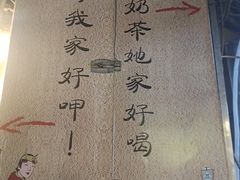 奶茶她家好喝
我家好呷！